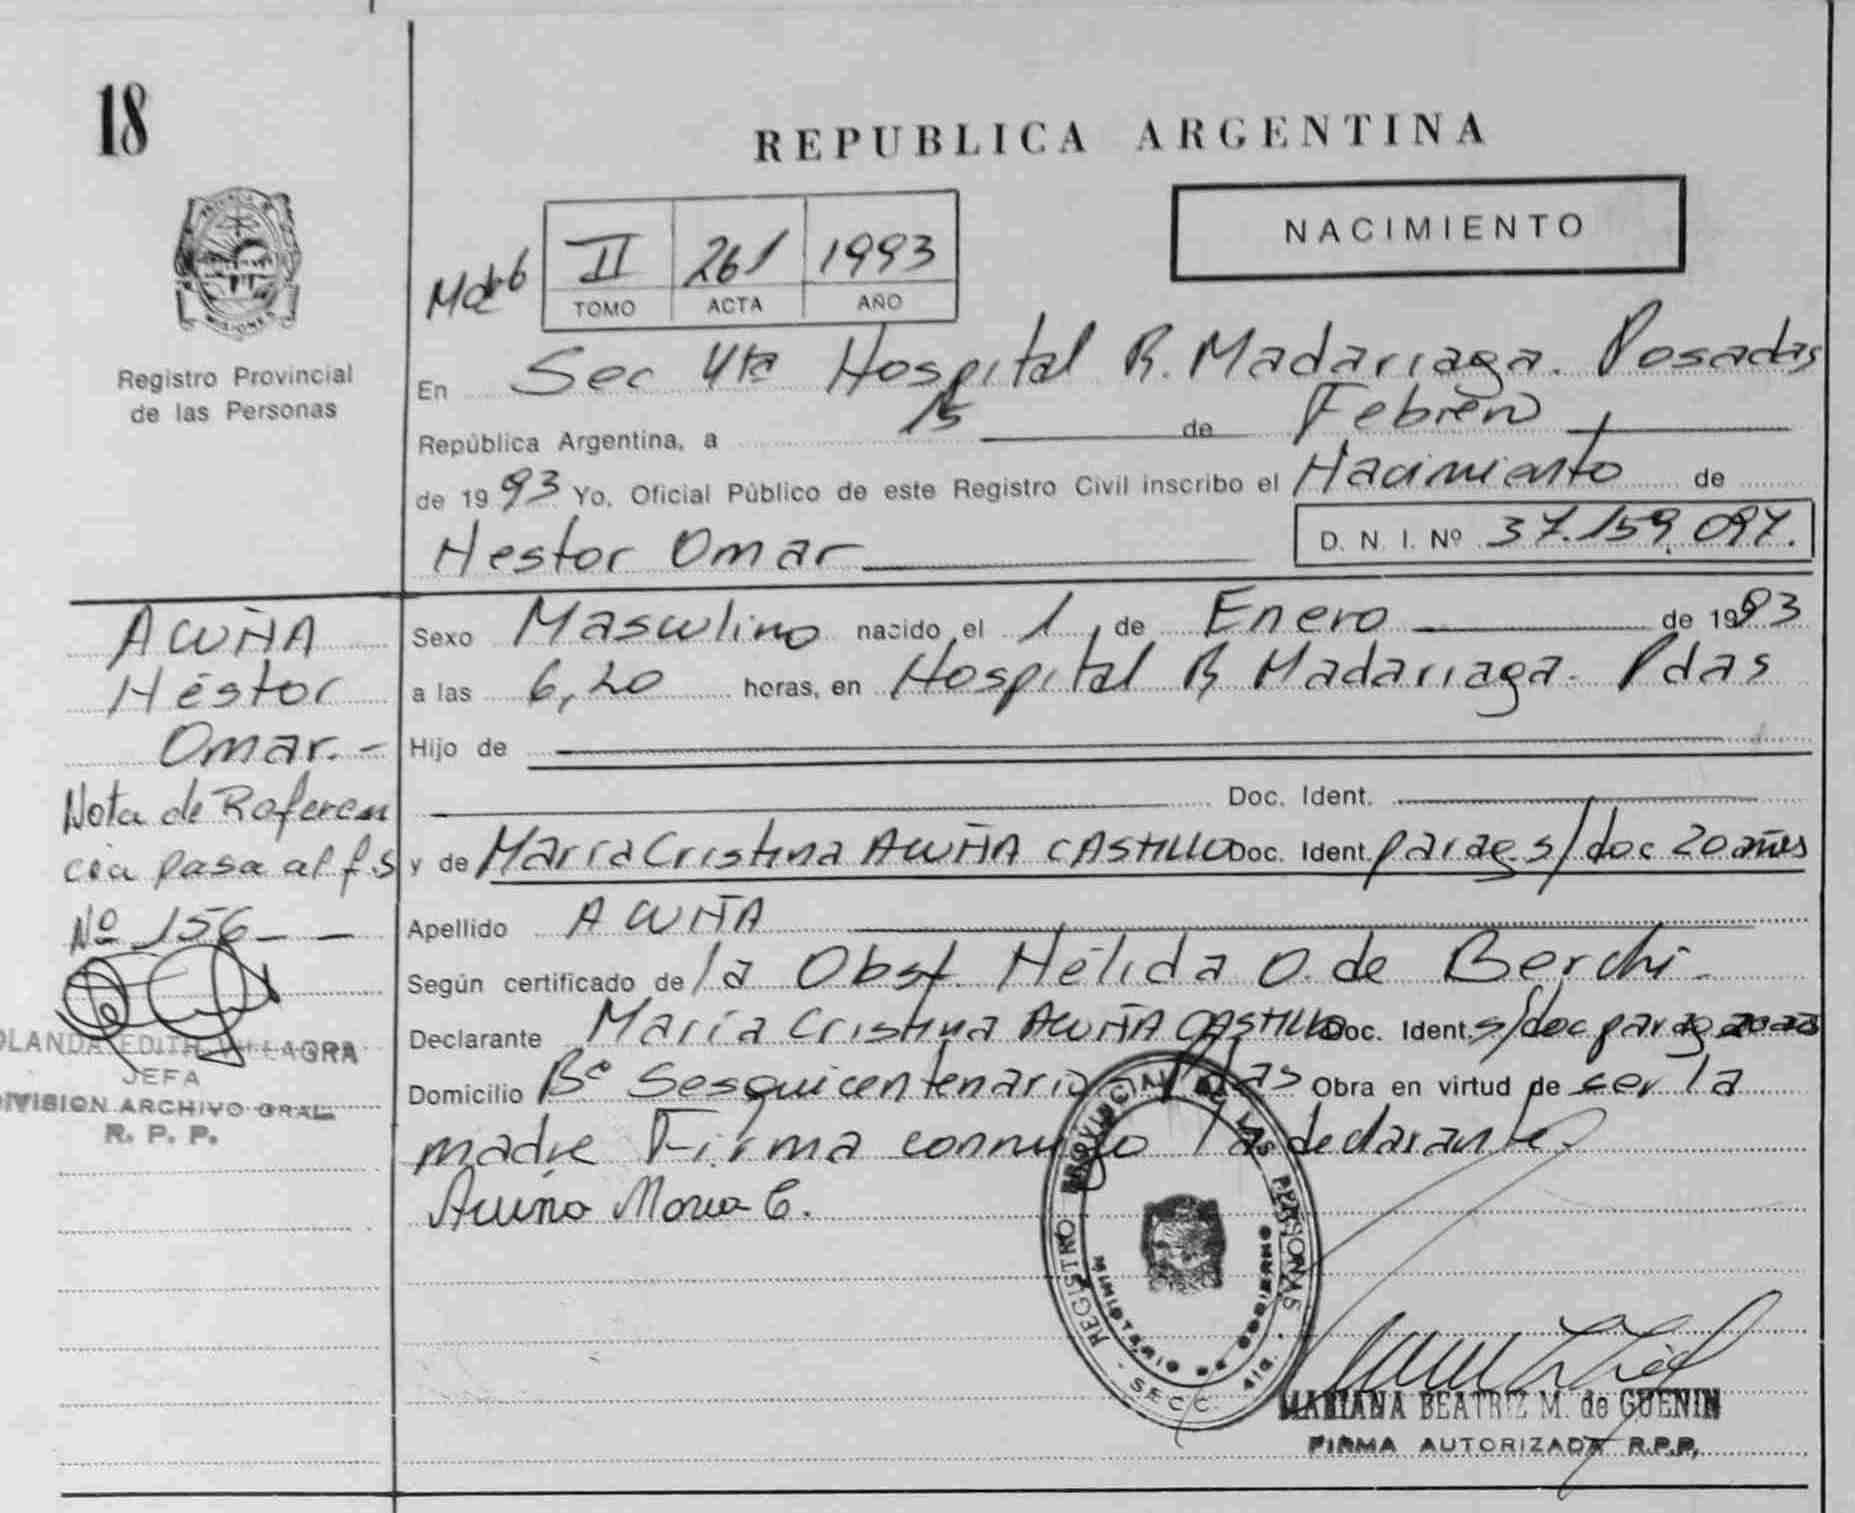 18
REPUBLICA ARGENTINA
NACIMIENTO
II 261 1993
TOMO ACTA AÑO
Registro Provincial
de las Personas
En Sec 4ta Hospital R. Madariaga. Posadas
República Argentina, a 15 de Febrero
de 1993 Yo, Oficial Público de este Registro Civil inscribo el Nacimiento de
Hestor Omar D. N. I. Nº 37.159.097.
ACUÑA
Héstor
Omar.-
Nota de Referen
cia pasa al f.s
Nº 156 - -
YOLANDA EDITH VILLAGRA
JEFA
DIVISION ARCHIVO GRAL.
R. P. P.
Sexo Masculino nacido el 1 de Enero de 1993
a las 6,20 horas, en Hospital R Madariaga. Pdas
Hijo de
Doc. Ident.
y de María Cristina ACUÑA CASTILLO Doc. Ident. parag. s/doc 20 años
Apellido ACUÑA
Según certificado de la Obst. Nélida O. de Berchi.
Declarante María Cristina ACUÑA CASTILLO Doc. Ident. s/doc parag
Domicilio Bº Sesquicentenario Pdas Obra en virtud de ser la
madre Firma conmigo la declarante.
Acuña Maria C.
REGISTRO PROVINCIAL DE LAS PERSONAS
MINISTERIO DE GOBIERNO
SECC.
MARIANA BEATRIZ M. de GUENIN
FIRMA AUTORIZADA R.P.P.